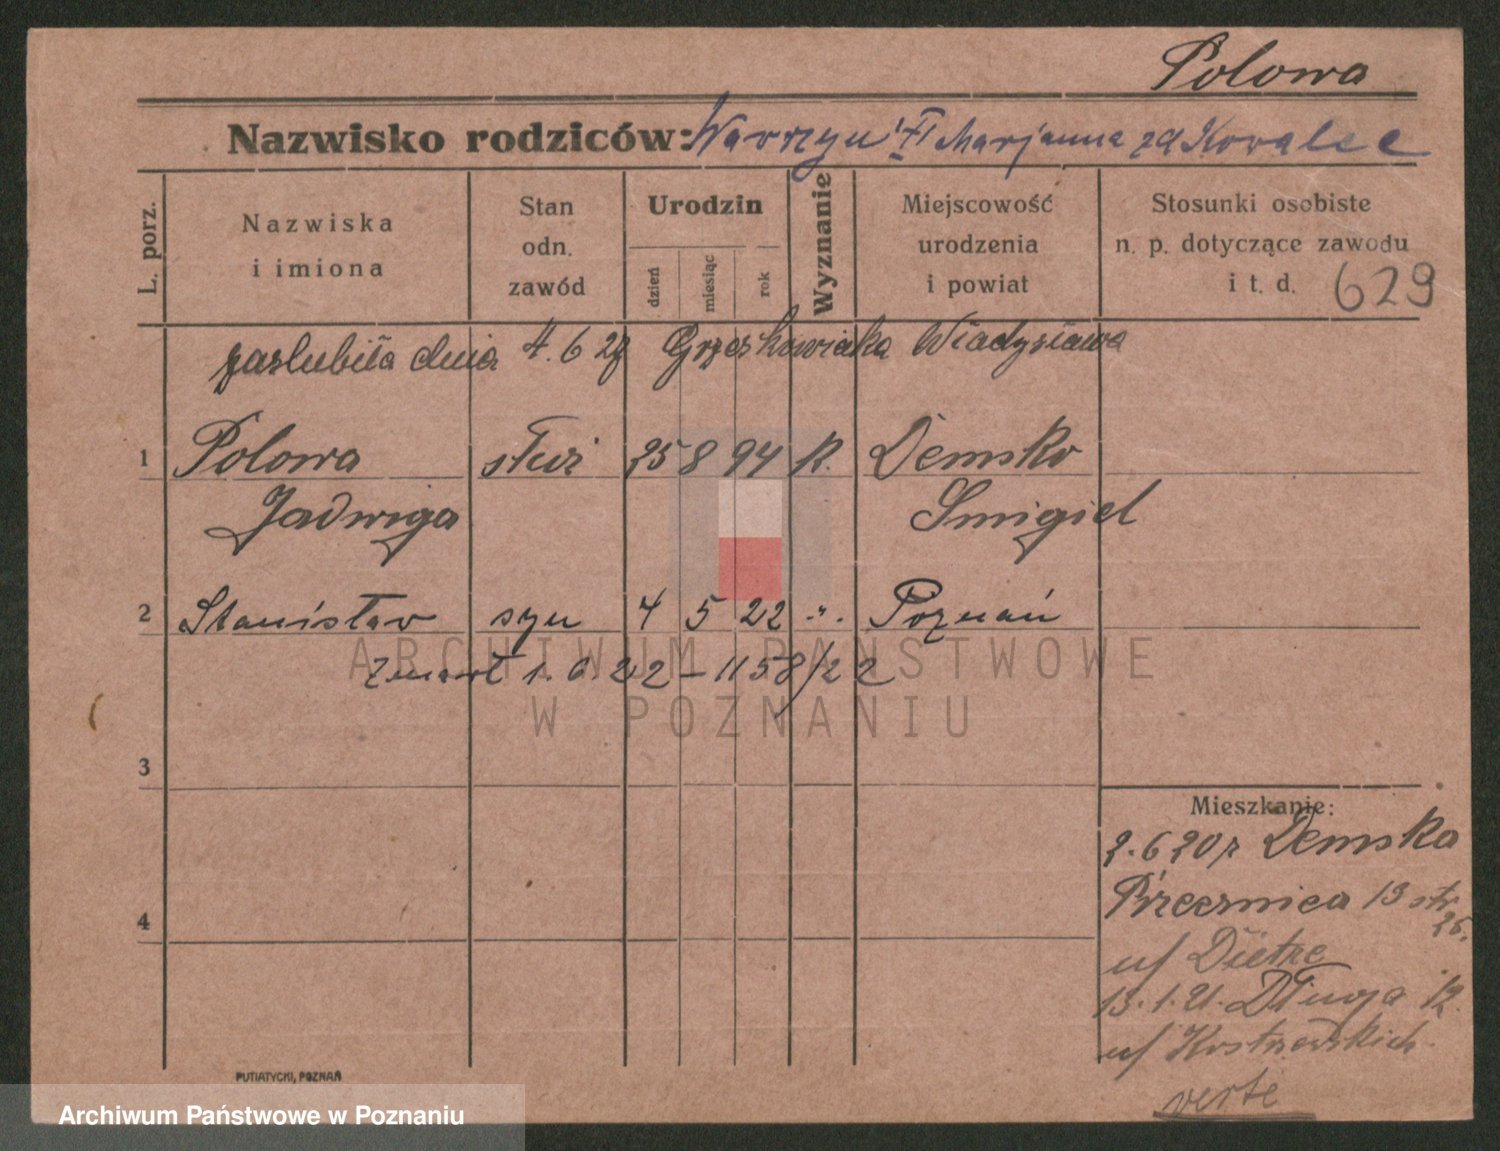 Polowa
Nazwisko rodziców: Wawrzyn i Marjanna zd Kovalec
L. porz.
Nazwiska i imiona
Stan odn. zawód
Urodzin
dzień
miesiąc
rok
Wyznanie
Miejscowość urodzenia i powiat
Stosunki osobiste n. p. dotyczące zawodu i t. d.
629
zaślubiła dnia 4. 6 27 Grześkowiaka Władysława
1 Polowa służ 25 8 94 k. Demsko
Jadwiga Smigiel
2 Stanisław syn 4 5 22 „. Poznań
zmarł 1. 6. 22 – 1158/22
3
Mieszkanie:
2. 6 20 z Demska
Przecznica 13 str
26.
u/ Dietze
4
13. 1. 21. Długa 12.
u/
verte
PUTIATYCKI, POZNAŃ
ARCHIWUM PAŃSTWOWE
W POZNANIU
Archiwum Państwowe w Poznaniu